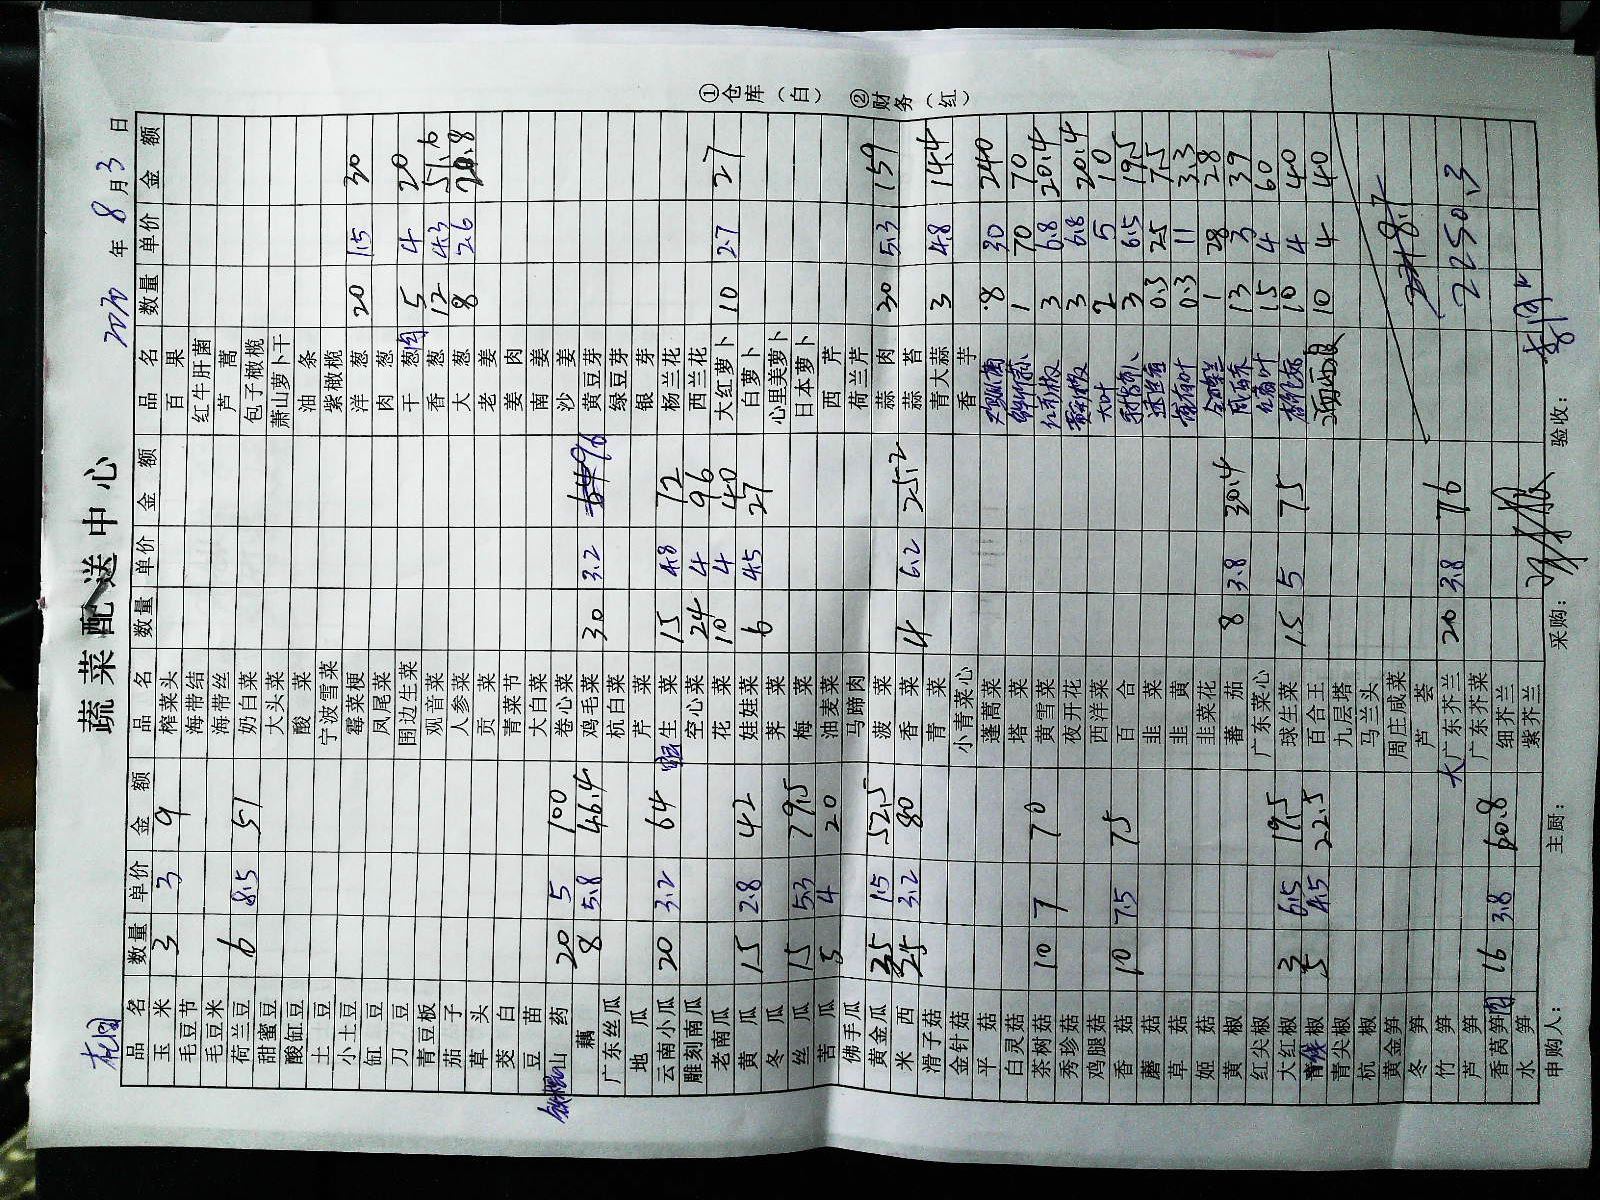 蔬菜配送中心
花园
2020 年 8 月 3 日
品名 数量 单价 金额 品名 数量 单价 金额 品名 数量 单价 金额
玉米 3 3 9 榨菜头 百果
毛豆节 海带结 红牛肝菌
毛豆米 海带丝 芦蒿
荷兰豆 6 8.5 51 奶白菜 包子橄榄
甜蜜豆 大头菜 萧山萝卜干
酸缸豆 酸菜 油条
土豆 宁波雪菜 紫橄榄
小土豆 霉菜梗 洋葱 20 1.5 30
缸豆 凤尾菜 肉葱
刀豆 围边生菜 干葱肉 5 4 20
青豆板 观音菜 香葱 12 4.3 51.6
茄子 人参菜 大葱 8 2.6 20.8
草头 贡菜 老姜
茭白 青菜节 姜肉
豆苗 大白菜 南姜
铁棍山药 20 5 100 卷心菜 沙姜
藕 8 5.8 46.4 鸡毛菜 30 3.2 96 黄豆芽
广东丝瓜 杭白菜 绿豆芽
地瓜 芹菜 银芽
云南小瓜 20 3.2 64 生菜 15 4.8 72 杨兰花
雕刻南瓜 空心菜 24 4 96 西兰花
老南瓜 花菜 10 4 40 大红萝卜 10 2.7 27
黄瓜 15 2.8 42 娃娃菜 6 4.5 27 白萝卜
冬瓜 荠菜 心里美萝卜
丝瓜 15 5.3 79.5 梅菜 日本萝卜
苦瓜 5 4 20 油麦菜 西芹
佛手瓜 马蹄肉 荷兰芹
黄金瓜 35 1.5 52.5 菠菜 蒜肉 30 5.3 159
米西 25 3.2 80 香菜 4 6.2 25.2 蒜苔
滑子菇 青菜 青大蒜 3 4.8 14.4
金针菇 小青菜心 香芋
平菇 蓬蒿菜 8 30 240
白灵菇 塔菜 1 70 70
茶树菇 10 7 70 黄雪菜 3 6.8 20.4
秀珍菇 夜开花 3 6.8 20.4
鸡腿菇 西洋菜 大叶 2 5 10
香菇 10 7.5 75 百合 3 6.5 19.5
蘑菇 韭菜 0.3 25 7.5
草菇 韭黄 0.3 11 3.3
姬菇 韭菜花 1 28 28
黄椒 蕃茄 8 3.8 30.4 13 3 39
红尖椒 广东菜心 15 4 60
大红椒 3 6.5 19.5 球生菜 15 5 75 10 4 40
青线椒 5 4.5 22.5 百合王 10 4 40
青尖椒 九层塔
杭椒 马兰头
黄金笋 周庄咸菜
冬笋 芦荟
竹笋 大广东芥兰 20 3.8 76 2250.3
芦笋 广东芥菜
香莴笋肉 16 3.8 60.8 细芥兰
水笋 紫芥兰
申购人： 主厨： 采购： 验收：
①仓库（白） ②财务（红）